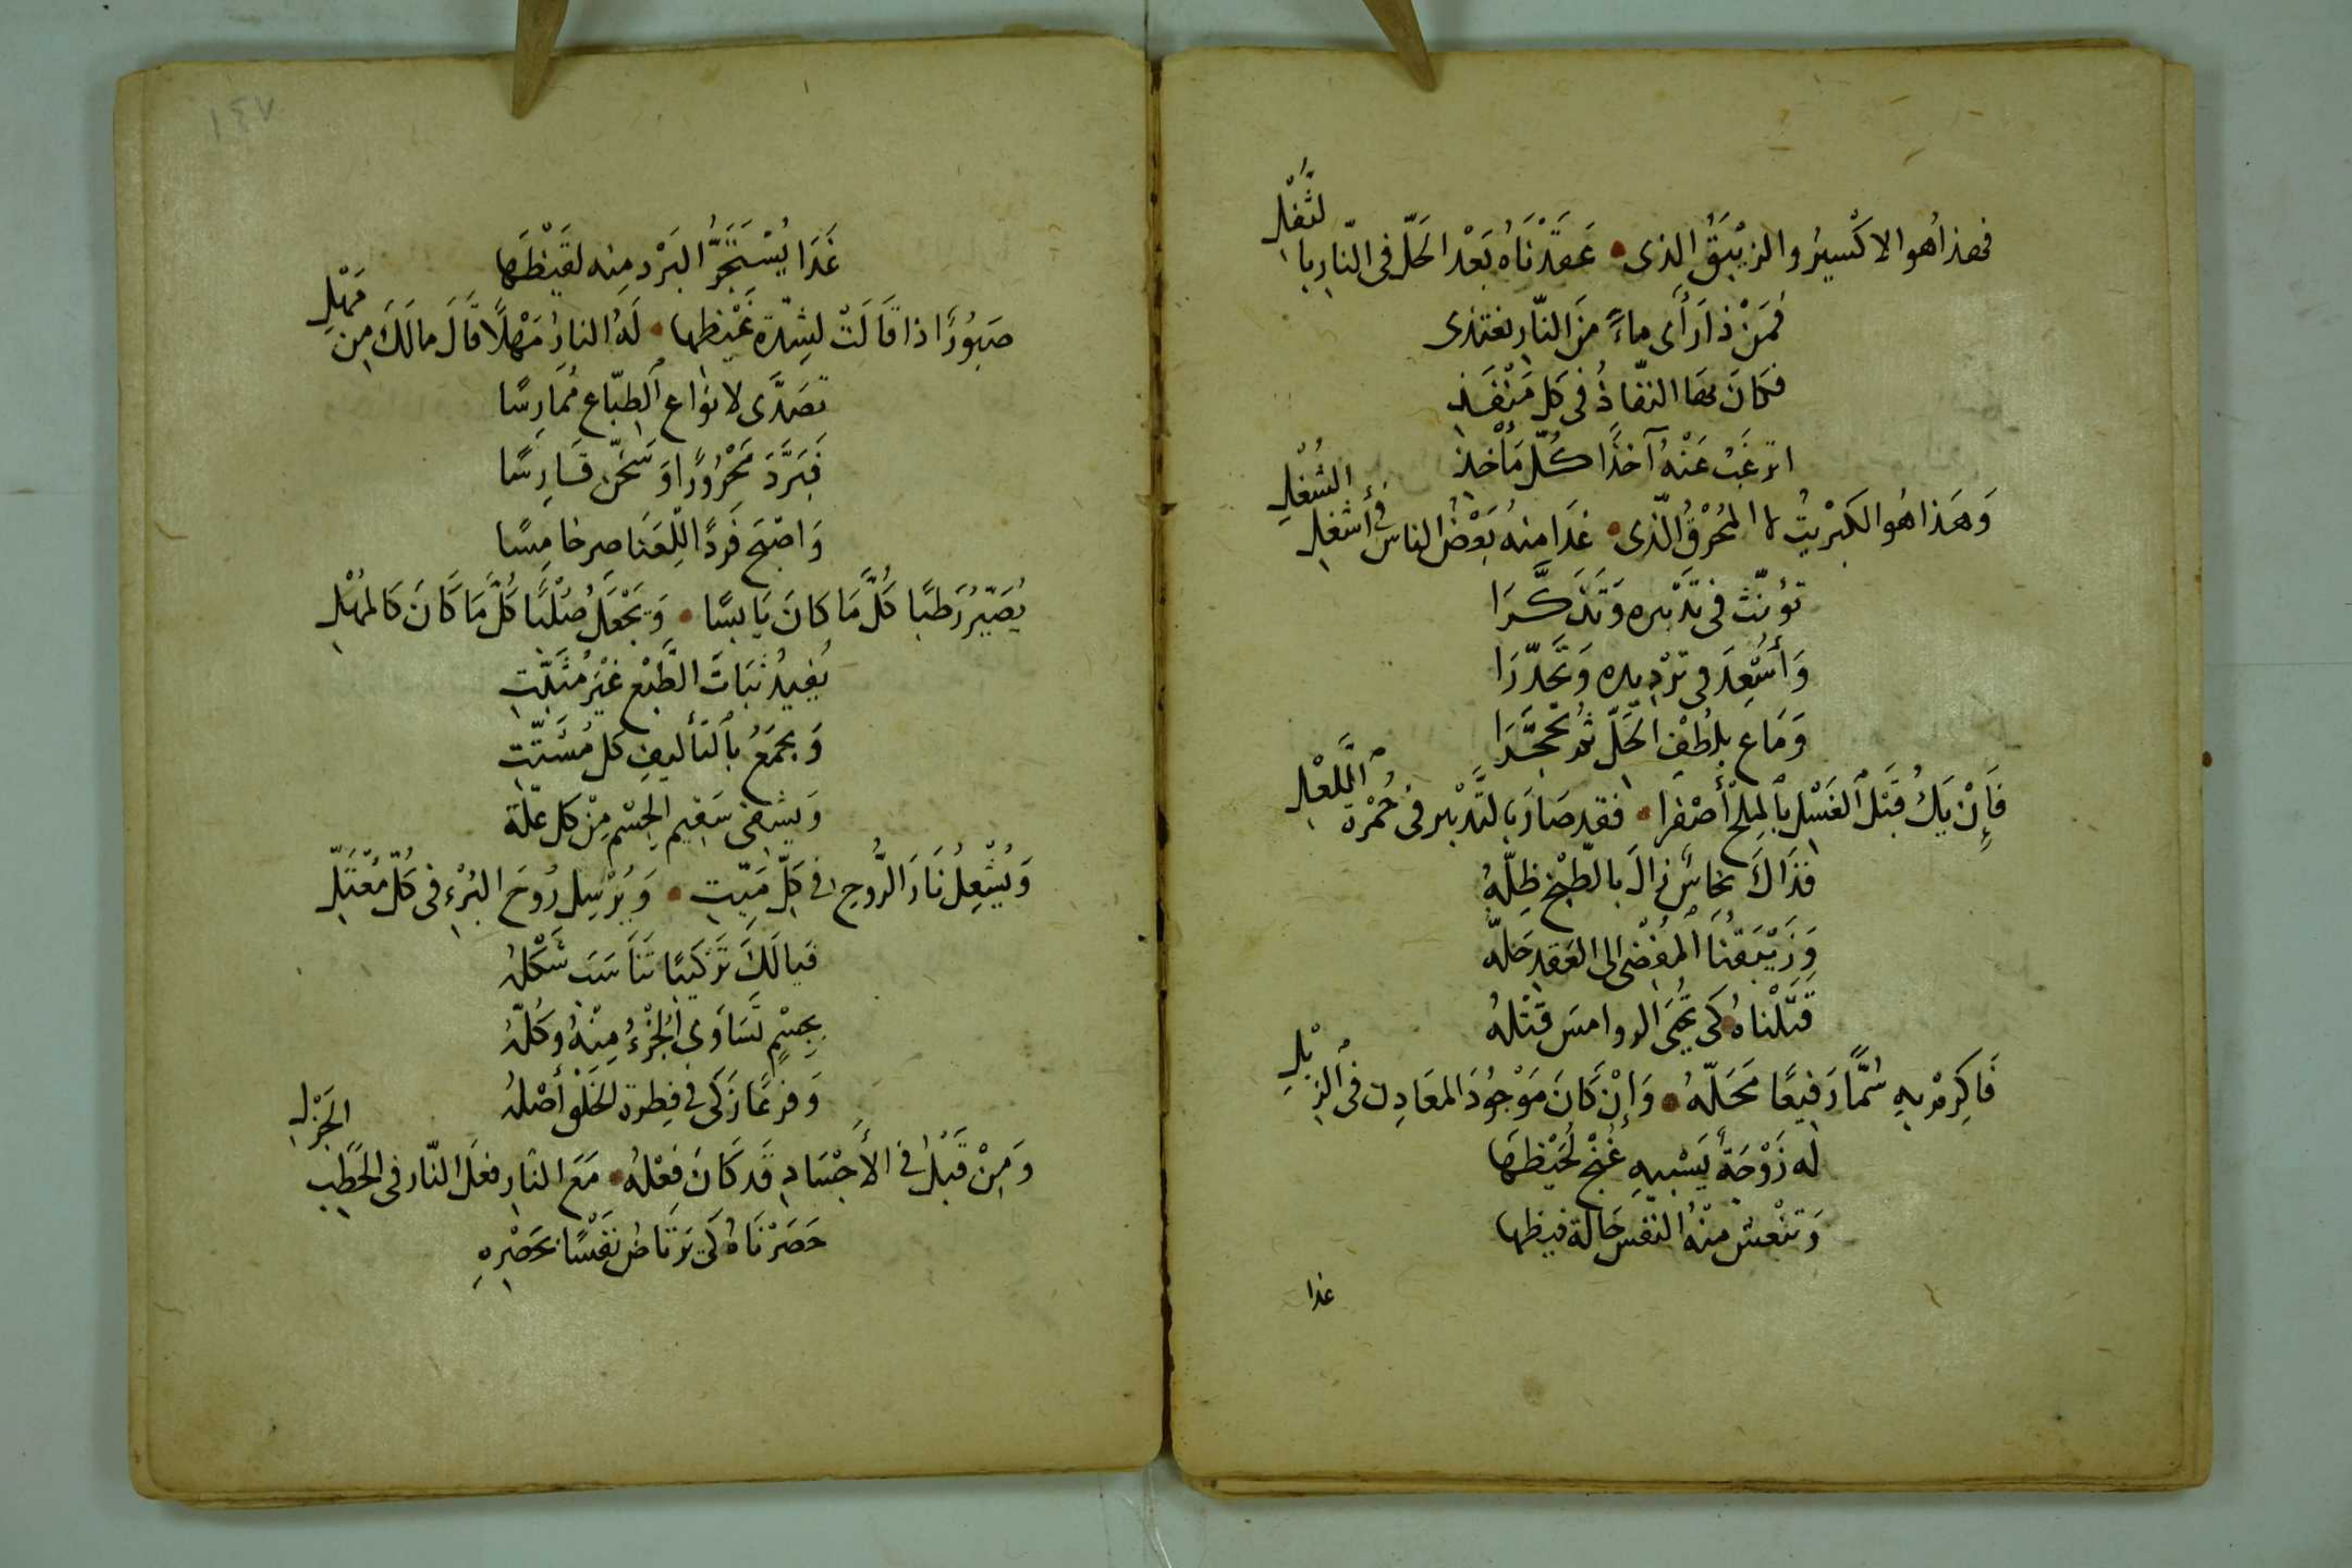 فهذا هو الاكْسيرُ والزيْبَقُ الذى • عَقَدْنَاهُ بَعْدَ الحَلّ فى النّار بالثُّفْلِ
فَمَنْ ذا رَأَى ماءً مِنَ النّار يغتذى
فكانَ بها النفّاذُ فى كل مَنْفَذِ
اترغَبُ عَنْهُ آخذًا كُلّ مَأخذ
وَهَذا هُو الكبْريتُ لا المُحْرقُ الّذى • غَدَا منهُ بَعْضُ الناس فى أشغل الشُغْلِ
تؤنّث فى تدْبيره وَتَذَكَّرَا
وَأُسْعِدَ فى ترْديده وَتَحَدّرَا
وَمَاع بلُطْفِ الحَلّ ثم تحجَّرَا
فَإنْ يَكُ قَبْلَ الغَسْل بالمِلْحِ أصْفَرا • فقد صَارَ بالتَّدْبير فى حُمْرَةِ اللَّعْلِ
فذَاكَ نحاسٌ زالَ بالطّبْخ ظِلّهُ
وَزَيْبَقُنَا المُفْضى الى العَقدِ حَلّهُ
قَتَلْنَاهُ كَى تُحْيَى الروامسَ قَتْلهُ
فَاكرِمْ بهِ سُمًّا رَفيعًا مَحَلّهُ • وَإنْ كَانَ مَوْجُودَ المعَادِن فى الزِبْلِ
له زَوْجَةٌ يَسْبيهِ غُنْجُ لُحَيْظِهَا
وَتنْعشُ منْهُ النّفسَ حَالة فيظها
غدا
١٤٧
غَدَا يُسْتَجَرُّ البَرْد مِنه لقَيْظِهَا
صَبُورًا اذا قَالَتْ لشِدّة غَيْظِها • لَهُ النارُ مَهْلًا قَالَ مالَكَ مِن مَهْلِ
تصَدَّى لانوَاع الطبّاع مُمَارِسًا
فَبَرَّدَ مَحْرُورًا وَسَخّن قَارِسًا
وَاصْبَح فَردًا للِعَنَاصر خامِسًا
يُصَيّرُ رَطبًا كُلَّ مَا كانَ يَابسًا • وَيَجْعَلُ صُلْبًا كُلَّ مَا كَانَ كَالمُهْلِ
يُفيدُ ثبَاتَ الطَّبْع غَيْرَ مُثَبّتِ
وَيجمَعُ بالتأليفِ كل مُشَتّتِ
وَيشفى سَقيم الجِسْم مِنْ كل علّة
وَيُشْعِلُ نَارَ الرُّوحِ فى كلّ مَيّتٍ • وَيُرْسِل رُوحَ البُرْءِ فى كُلّ مُعْتَلِ
فَيا لَكَ تَركيبًا تَنَاسَبَ شَكْلُهُ
بِجِسْمٍ تَسَاوَى الجُزْءُ مِنْهُ وكُلّهُ
وَفرْعًا زَكَى فى فِطرة الخَلْق أصْلهُ
وَمِنْ قَبْلُ فى الأجْسَادِ قَد كَانَ فِعْلهُ • مَعَ النّار فعلَ النّار فى الحَطَبِ الجَزْلِ
حَصَرْنَاهُ كَى يَرْتَاضَ نَفْسًا بحَصْرِهِ